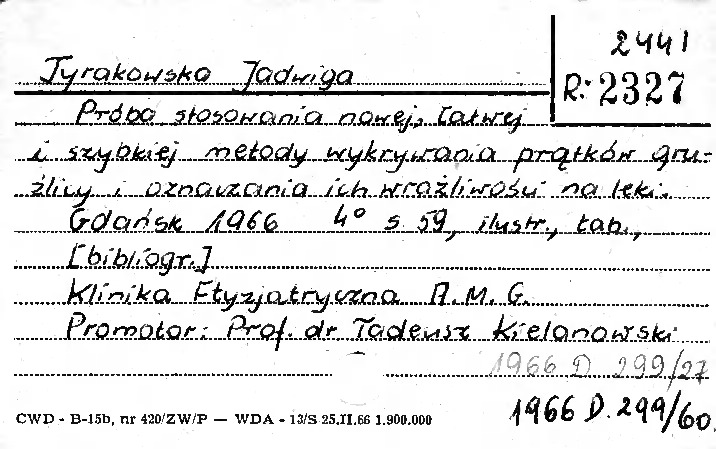 2441
Tyrakowska Jadwiga
R: 2327
Próba stosowania nowej, łatwej
i szybkiej metody wykrywania prątków gru-
źlicy i oznaczania ich wrażliwości na leki.
Gdańsk 1966 4° s 59, ilustr., tab.,
[bibliogr.]
Klinika Ftyzjatryczna A.M.G.
Promotor: Prof. dr Tadeusz Kielanowski
1966 D 299/27
1966 D. 299/60.
CWD - B-15b, nr 420/ZW/P — WDA - 13/S 25.II.66 1.900.000